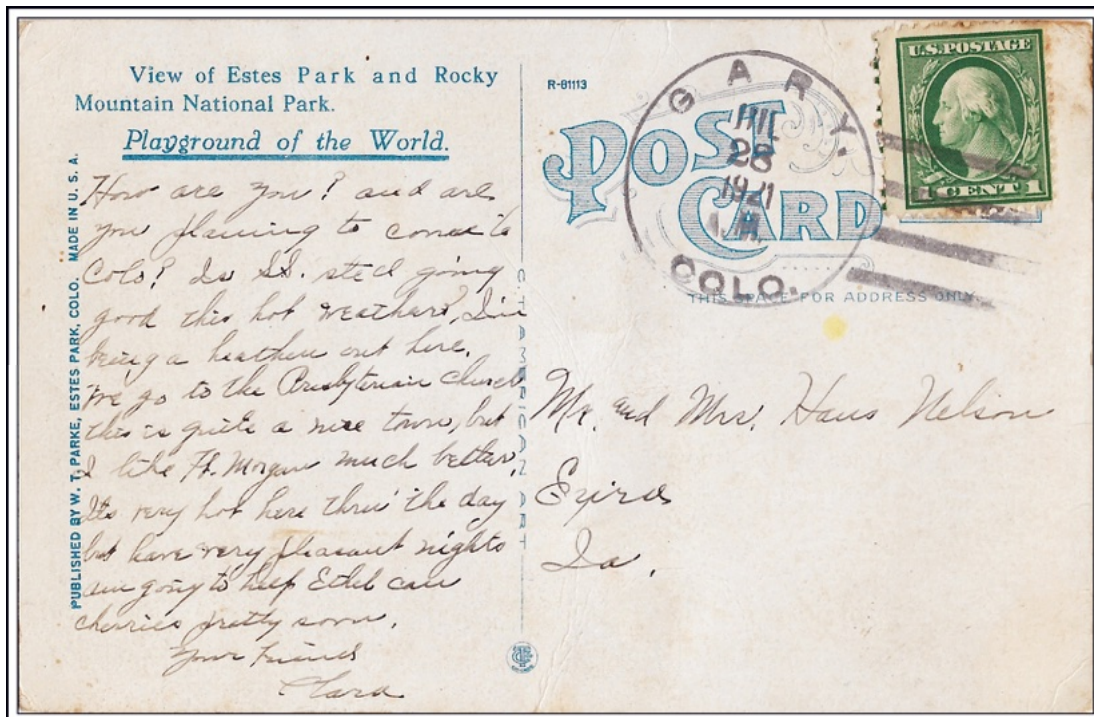 View of Estes Park and Rocky
Mountain National Park.
Playground of the World.
PUBLISHED BY W. T. PARKE, ESTES PARK, COLO. MADE IN U. S. A.
How are you? and are
you planning to come to
Colo? Is S.S. still going
good this hot weather? I'm
being a heathen out here.
We go to the Presbyterian church
this is quite a nice town, but
I like Ft. Morgan much better.
Its very hot here thru the day
but have very pleasant nights
am going to help Ethel can
cherries pretty soon.
Your Friend
Clara
C. T. AMERICAN ART
R-81113
POST CARD
GARY.
JUL
28
1921
A.M.
COLO.
U.S. POSTAGE
1 CENT 1
THIS SPACE FOR ADDRESS ONLY
Mr. and Mrs. Hans Nelson
Exira
Ia.